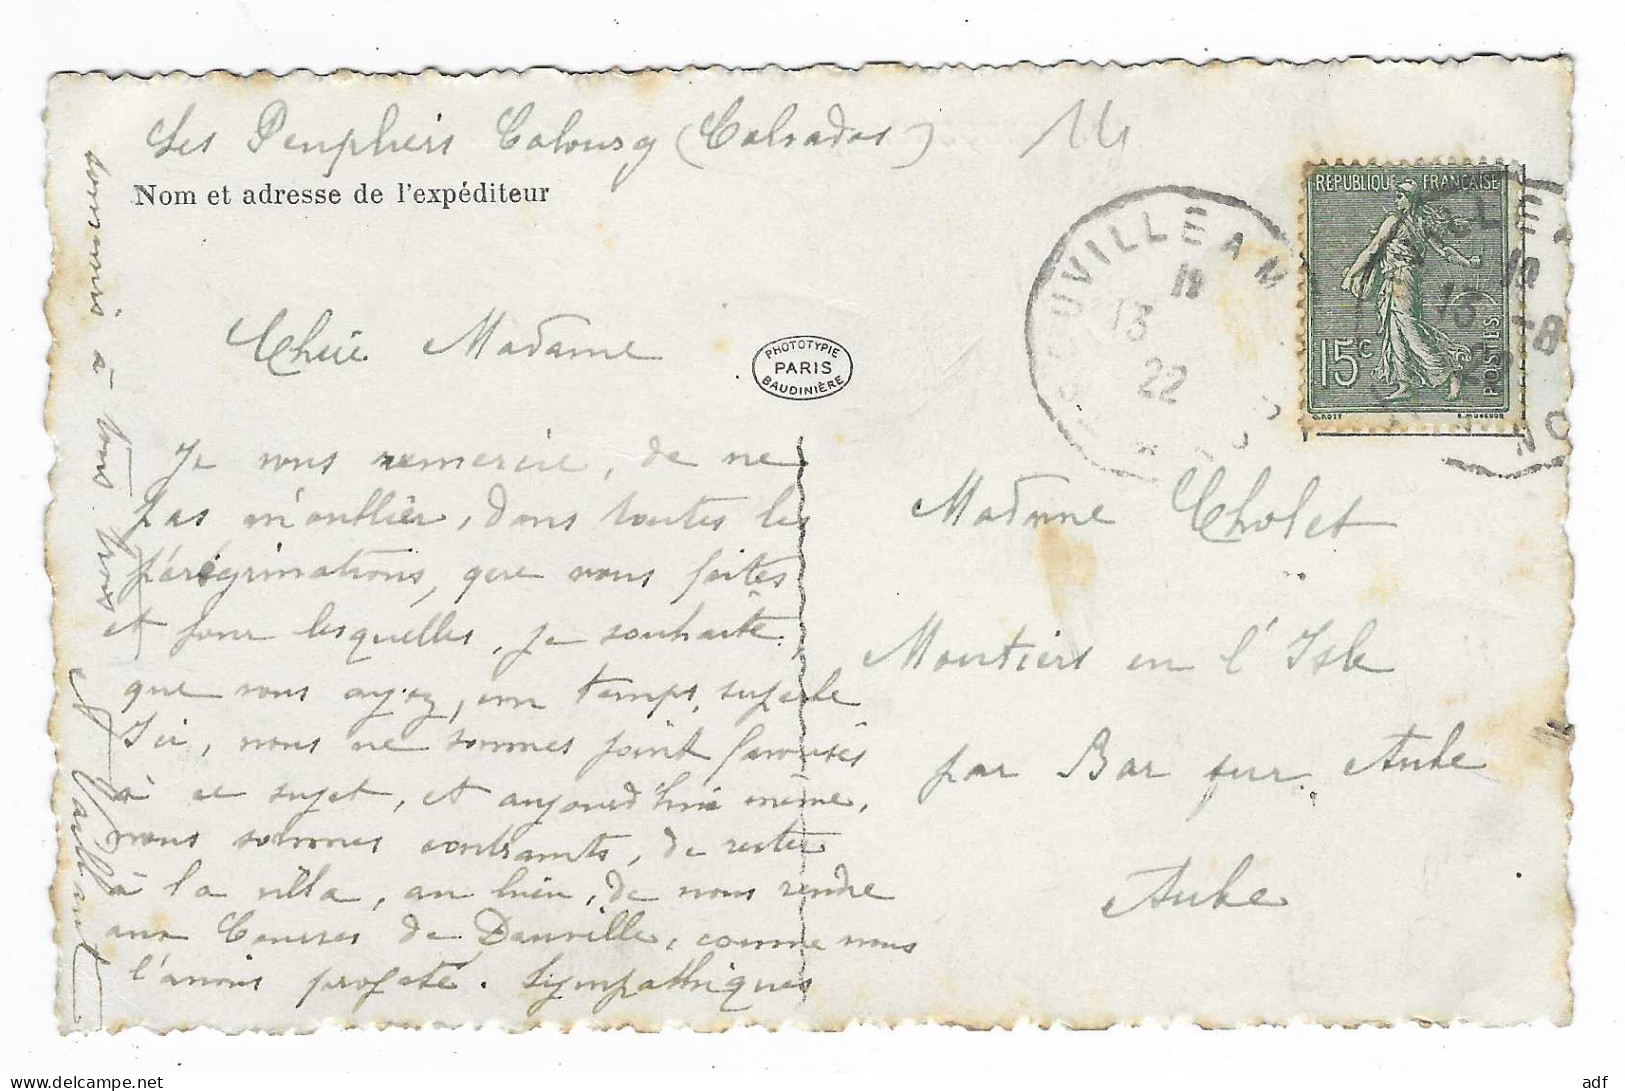 Les Peupliers Cabourg (Calvados)
Nom et adresse de l'expéditeur
RÉPUBLIQUE FRANÇAISE
15c
POSTES
UVILLE AN
13
22
-8
PHOTOTYPIE
PARIS
BAUDINIÈRE
Chère Madame
Je vous remercie, de ne
pas m'oublier, dans toutes les
pérégrinations, que vous faites
et pour lesquelles, je souhaite,
que vous ayez, un temps, superbe
Ici, nous ne sommes point favorisés
à ce sujet, et aujourd'hui même,
nous sommes contraints, de rester
à la villa, au lieu, de nous rendre
aux Courses de Deauville, comme nous
l'avions projeté. Sympathiques
souvenirs à tous
Vaillant
Madame Cholet
Moutiers en l'Isle
par Bar sur Aube
Aube
adf